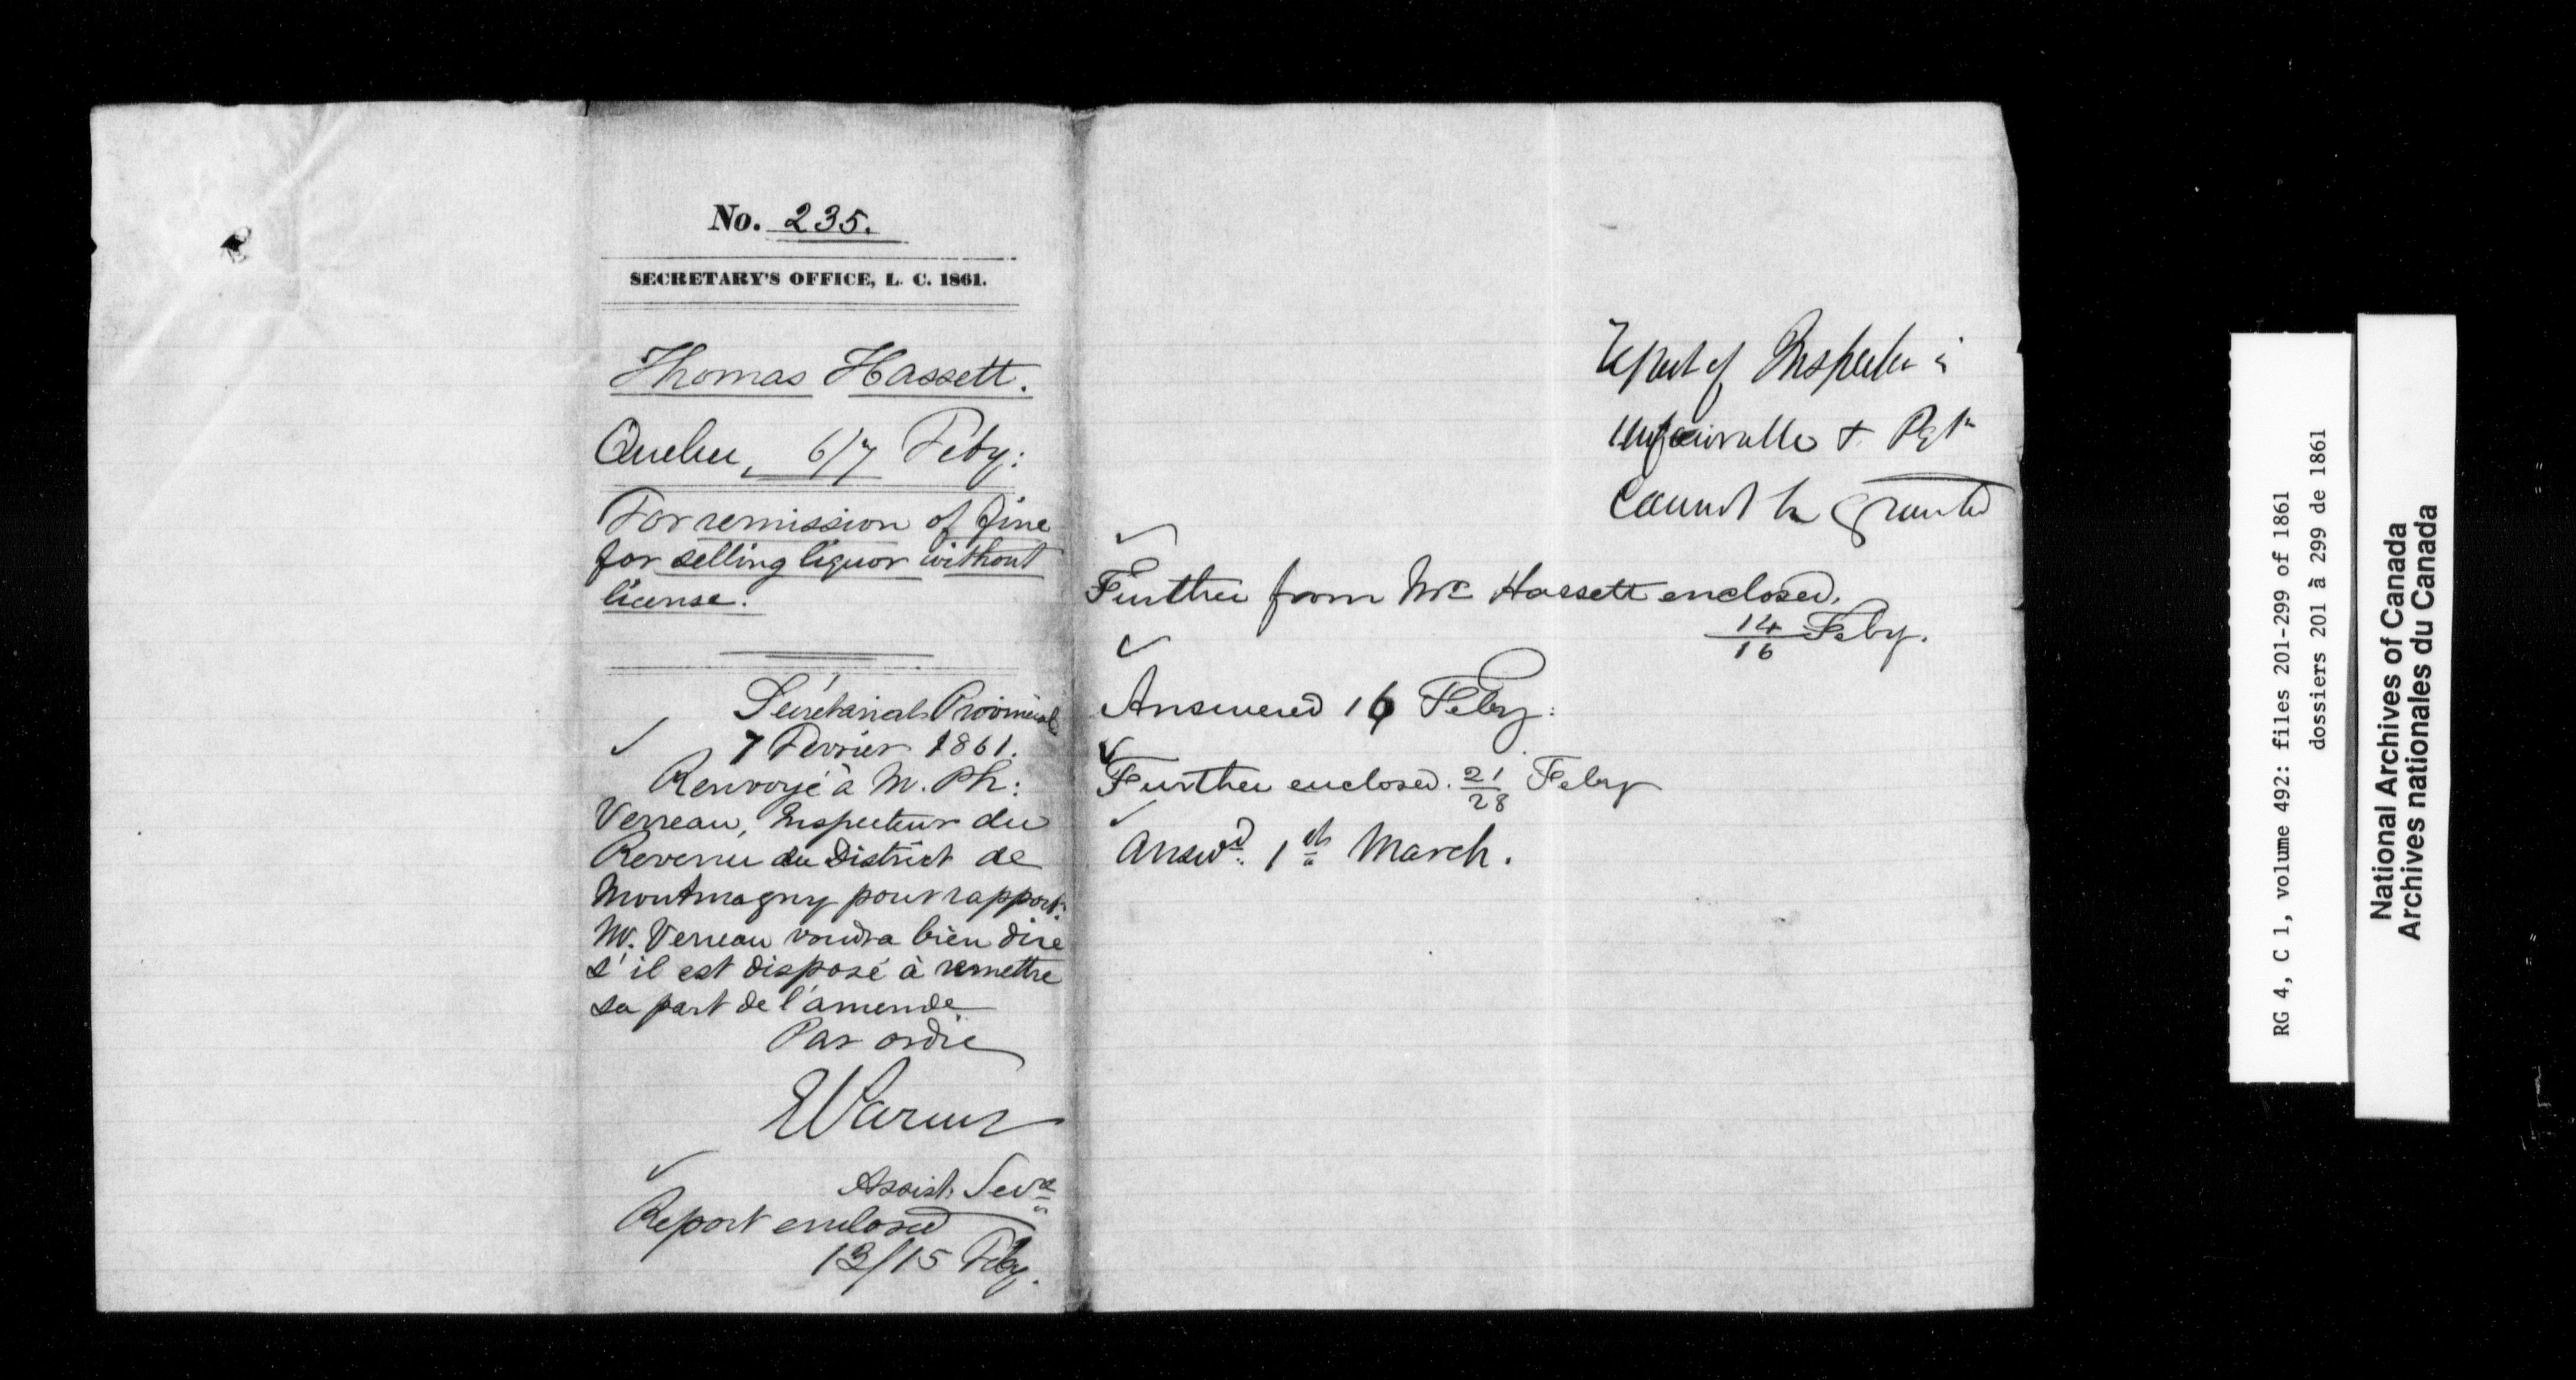 No. 235.
SECRETARY'S OFFICE, L. C. 1861.
Thomas Hassett.
Quebec, 6/7 Feby:
For remission of fine
for selling liquor without
license.
Secrétariat Provincial
7 Fevrier 1861.
Renvoyé à M. Ph:
Verreau, Inspecteur du
Revenu du District de
Montmagny pour rapport.
M. Verreau voudra bien dire
s'il est disposé à remettre
sa part de l'amende
Par ordre
E Parent
Assist. Secre
Report enclosed
13/15 Feby.
Report of Inspector is
unfavorable & Petn
Cannot be granted
Further from Mr Hassett enclosed.
14/16 Feby.
Answered 16 Feby:
Further enclosed. 21/28 Feby
Answd. 1st March.
RG 4, C 1, volume 492: files 201-299 of 1861
dossiers 201 à 299 de 1861
National Archives of Canada
Archives nationales du Canada